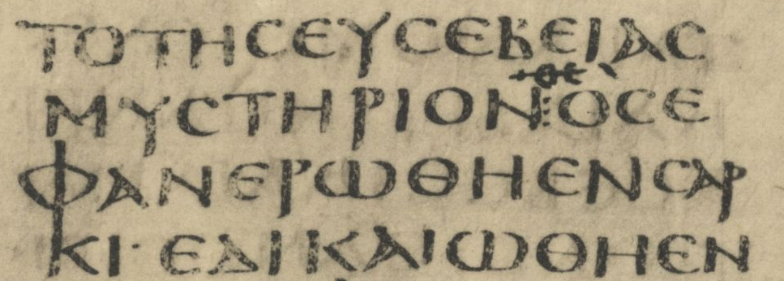 ΤΟΤΗϹΕΥϹΕΒΕΙΑϹ
ΜΥϹΤΗΡΙΟΝΟϹΕ
ΦΑΝΕΡΩΘΗΕΝϹΑΡ
ΚΙ·ΕΔΙΚΑΙΩΘΗΕΝ